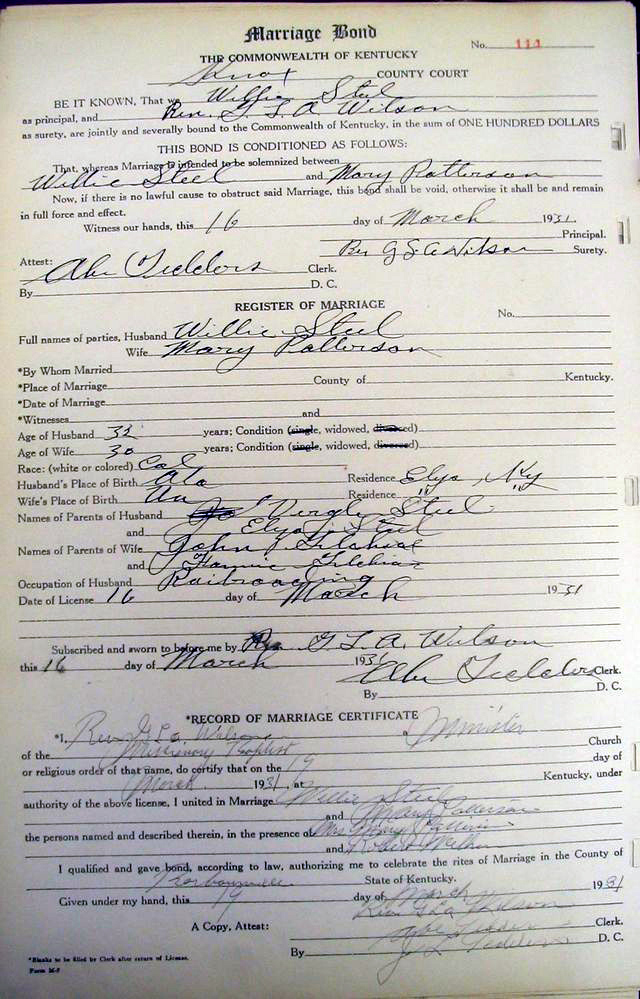 Marriage Bond
No. 111
THE COMMONWEALTH OF KENTUCKY
Knox COUNTY COURT
BE IT KNOWN, That we Willie Steel
as principal, and Rev. G. L. A. Wilson
as surety, are jointly and severally bound to the Commonwealth of Kentucky, in the sum of ONE HUNDRED DOLLARS
THIS BOND IS CONDITIONED AS FOLLOWS:
That, whereas Marriage is intended to be solemnized between
Willie Steel and Mary Patterson
Now, if there is no lawful cause to obstruct said Marriage, this bond shall be void, otherwise it shall be and remain
in full force and effect.
Witness our hands, this 16 day of March 1931.
Principal.
Rev G L A Wilson Surety.
Attest:
Abe Tedders Clerk.
By D. C.
REGISTER OF MARRIAGE
No.
Full names of parties, Husband Willie Steel
Wife Mary Patterson
*By Whom Married
*Place of Marriage County of Kentucky.
*Date of Marriage
*Witnesses and
Age of Husband 32 years; Condition (single, widowed, divorced)
Age of Wife 30 years; Condition (single, widowed, divorced)
Race: (white or colored) Col
Husband's Place of Birth Ala Residence Elys, Ky
Wife's Place of Birth Residence " "
Names of Parents of Husband Steel
and Steel
Names of Parents of Wife John
and Fannie
Occupation of Husband Railroading
Date of License 16 day of March 1931
Subscribed and sworn to before me by Rev G. L. A. Wilson
this 16 day of March 1931 Abe Tedders Clerk.
By D. C.
*RECORD OF MARRIAGE CERTIFICATE
*I, Rev G L A Wilson a Minister
of the Missionary Baptist Church
or religious order of that name, do certify that on the 19 day of
March 1931, at Kentucky, under
authority of the above license, I united in Marriage Willie Steel
and Mary Patterson
the persons named and described therein, in the presence of Mrs Mary
and Robert
I qualified and gave bond, according to law, authorizing me to celebrate the rites of Marriage in the County of
State of Kentucky.
Given under my hand, this 19 day of March 1931
Rev G L A Wilson
A Copy, Attest: Abe Tedders Clerk.
By J. L. Tedders D. C.
*Blanks to be filled by Clerk after return of License.
Form M-F